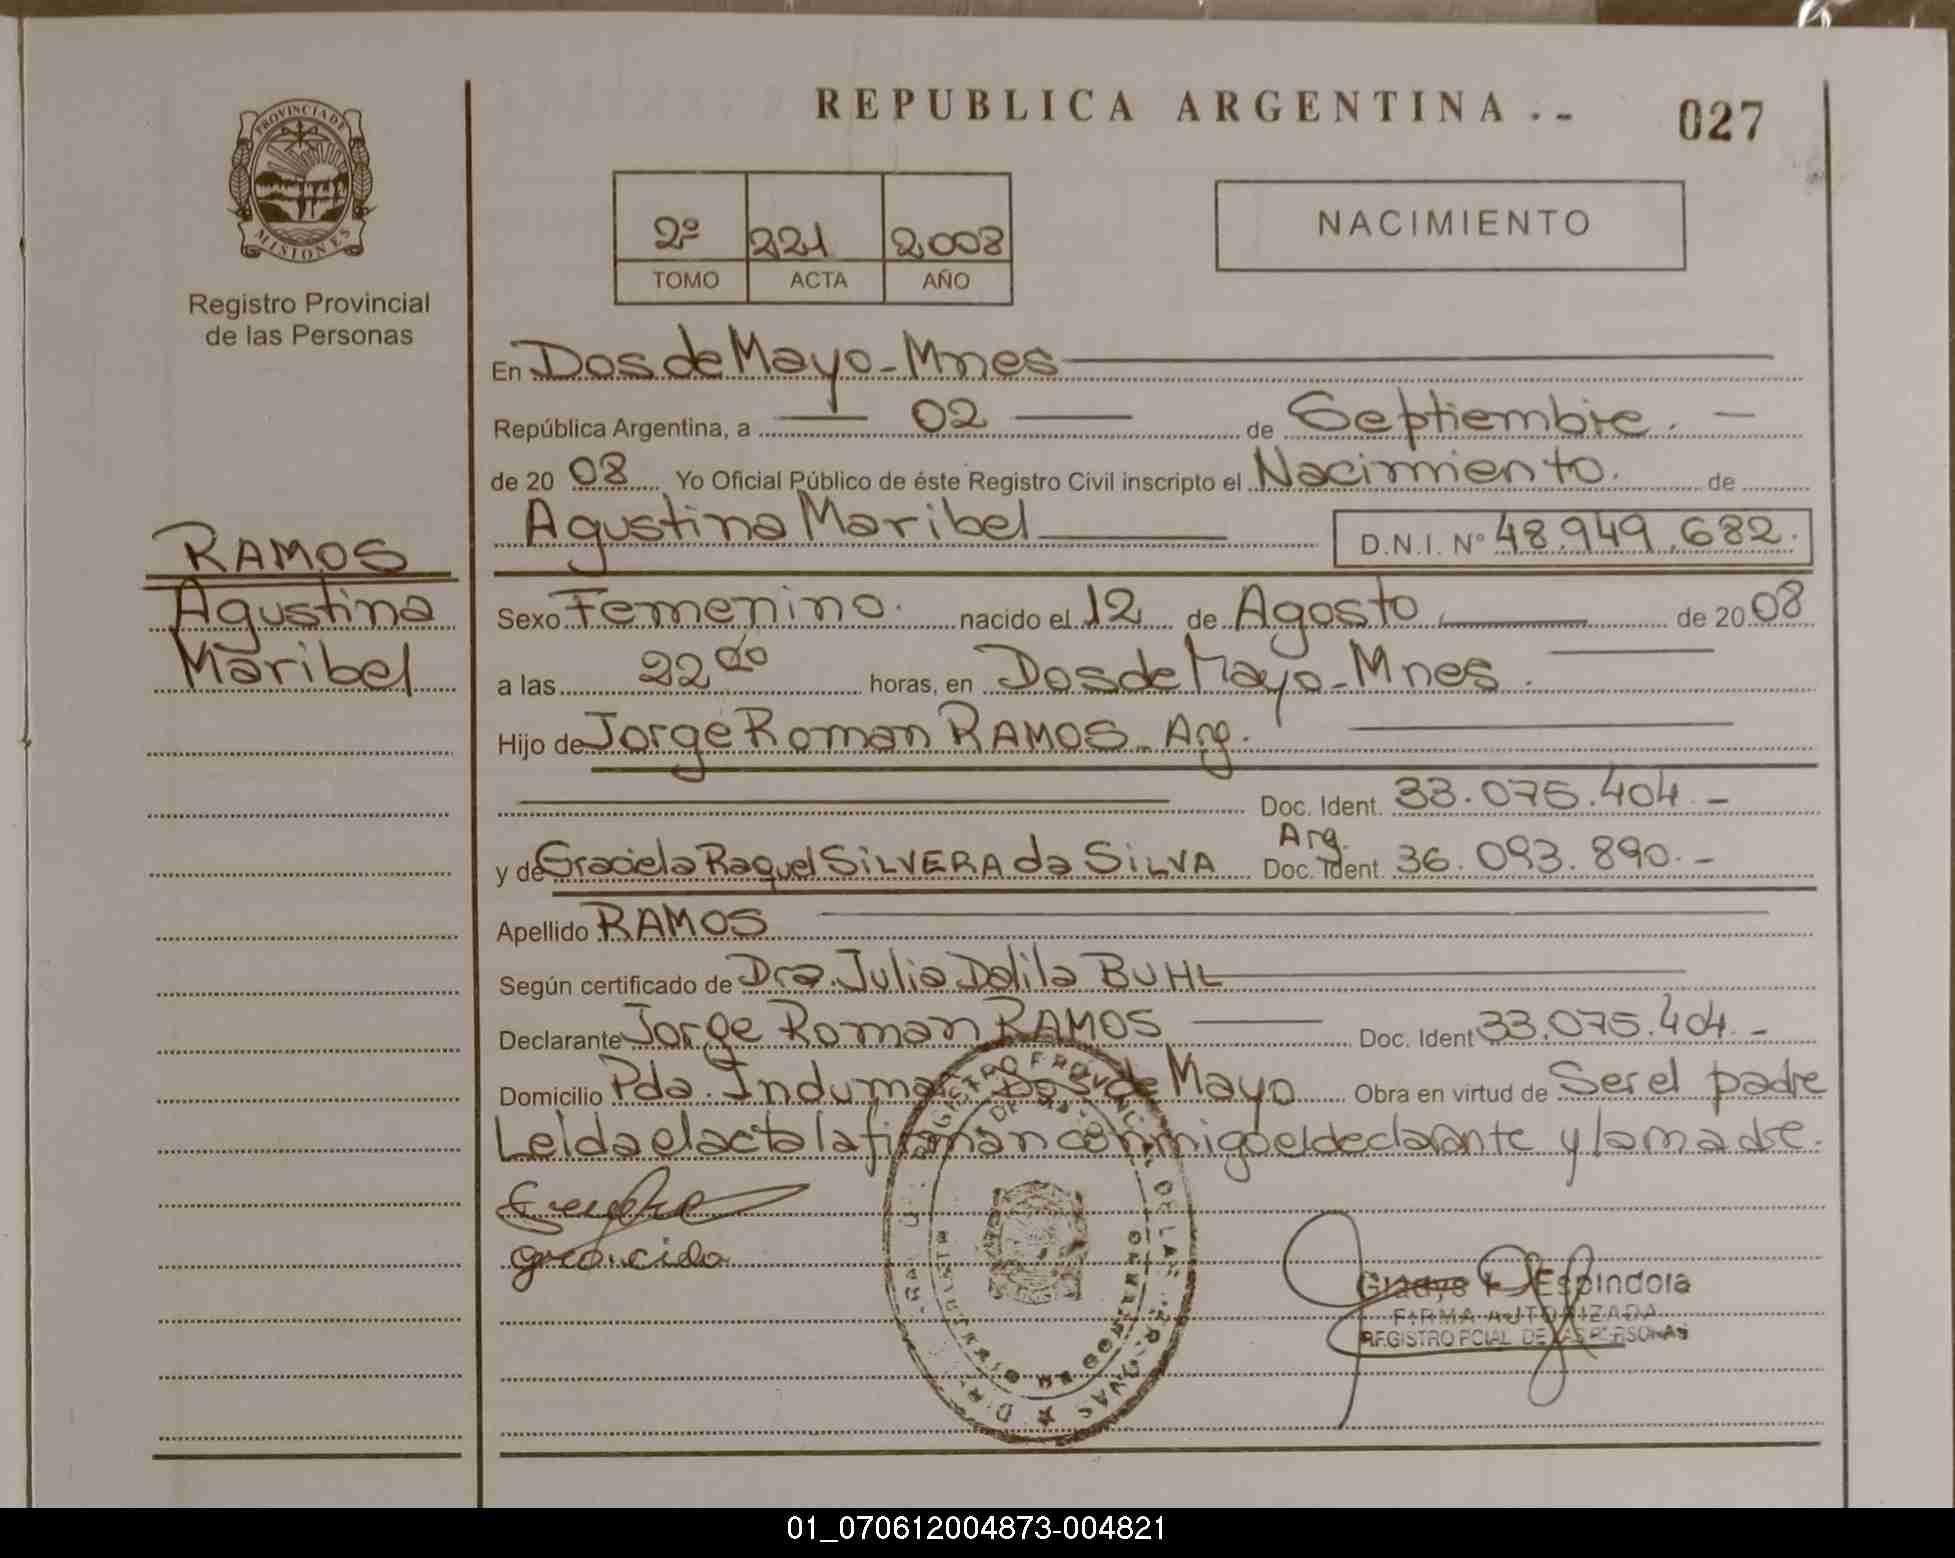 REPUBLICA ARGENTINA . -
027
PROVINCIA DE
MISIONES
Registro Provincial
de las Personas
2º 221 2008
TOMO ACTA AÑO
NACIMIENTO
En Dos de Mayo - Mnes
República Argentina, a 02 de Septiembre. -
de 20 08 Yo Oficial Público de éste Registro Civil inscripto el Nacimiento. de
Agustina Maribel D.N.I. Nº 48.949.682.
RAMOS
Agustina
Maribel
Sexo Femenino. nacido el 12 de Agosto de 20 08
a las 22 00 horas, en Dos de Mayo - Mnes.
Hijo de Jorge Roman RAMOS - Arg.
Doc. Ident. 33.075.404.-
y de Graciela Raquel SILVERA da SILVA Arg. Doc. Ident. 36.093.890.-
Apellido RAMOS
Según certificado de Dra. Julia Dalila BUHL
Declarante Jorge Roman RAMOS Doc. Ident 33.075.404.-
Domicilio Pda. Indumar Dos de Mayo Obra en virtud de Ser el padre
Leida el acta la firman conmigo el declarante y la madre.
Gladys Espindola
FIRMA AUTORIZADA
REGISTRO PCIAL DE LAS PERSONAS
01_070612004873-004821